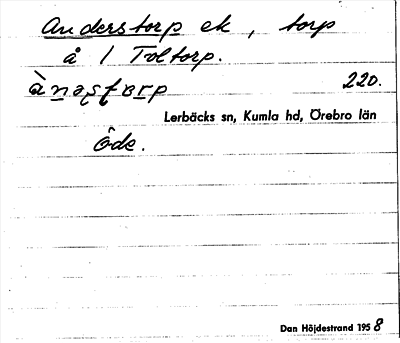 Anderstorp ek, torp
å 1 Toltorp.
ànastorp 220.
Lerbäcks sn, Kumla hd, Örebro län
Öde.
Dan Höjdestrand 1958